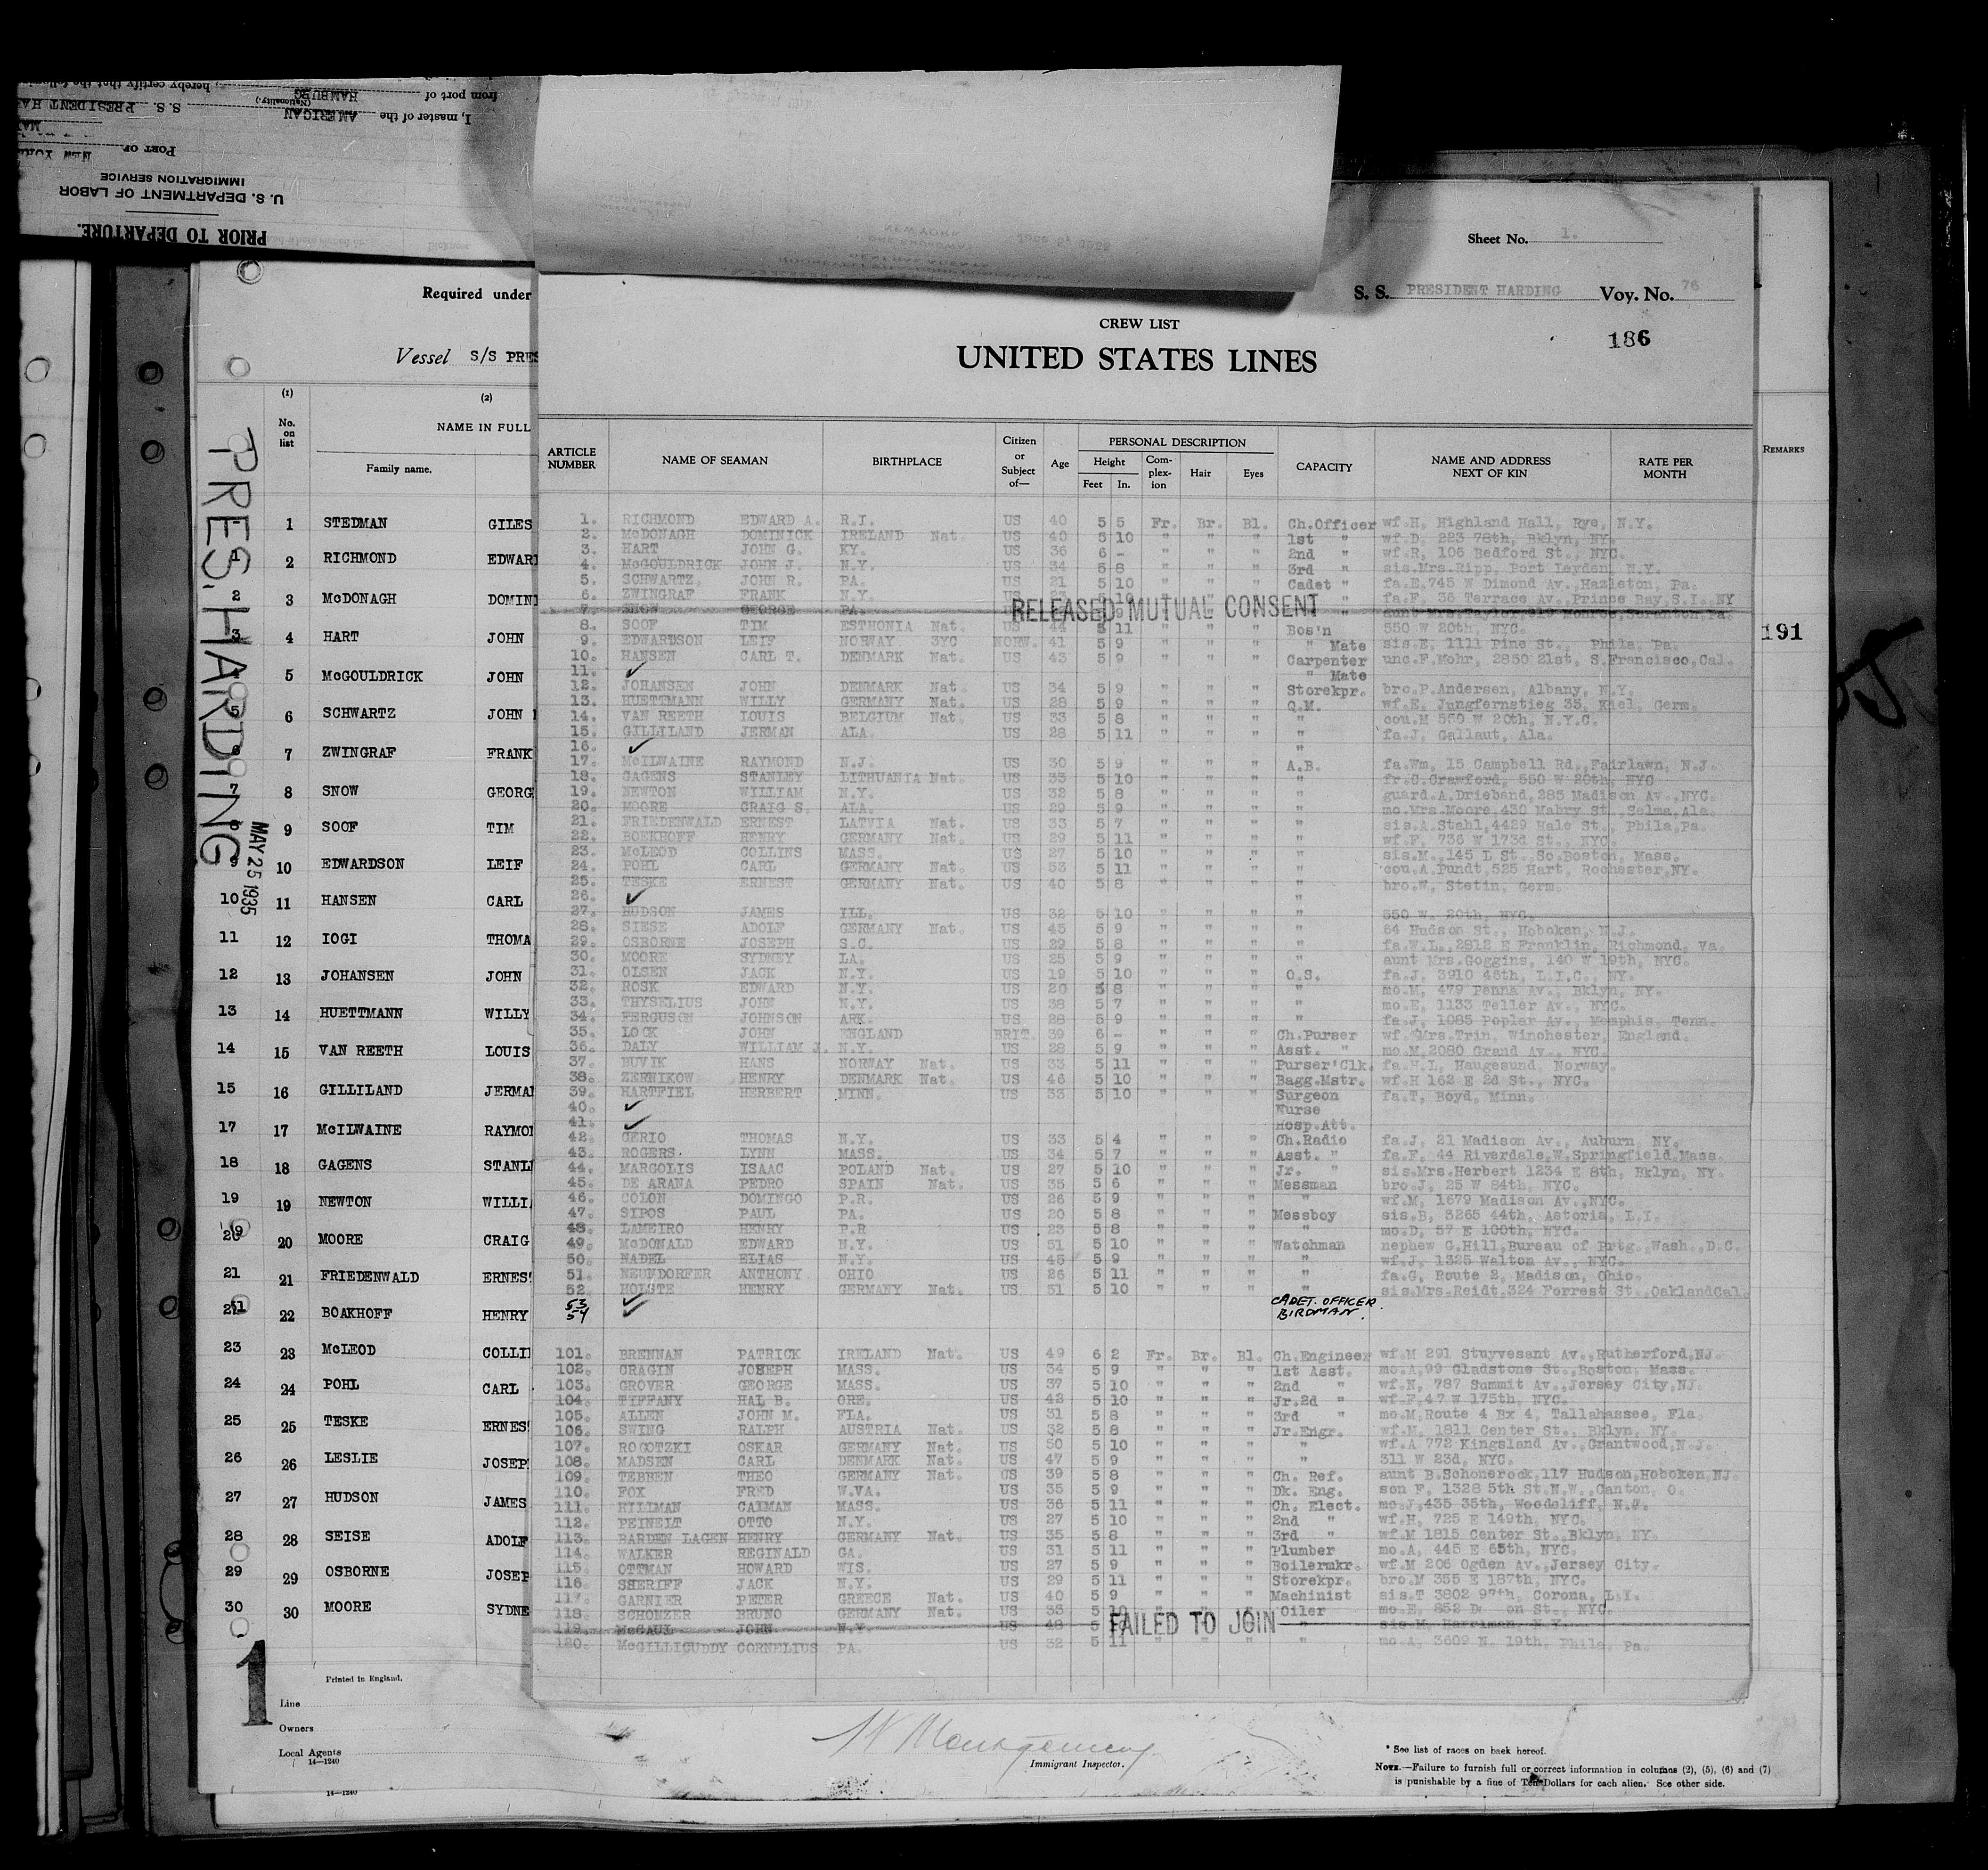 PRIOR TO DEPARTURE.
U. S. DEPARTMENT OF LABOR
IMMIGRATION SERVICE
PORT OF NEW YORK
I, master of the AMERICAN S.S. PRESIDENT HA
(Nationality)
from port of HAMBURG, hereby certify that
Required under
Vessel S/S PRES
PRES. HARDING
MAY 25 1935
(1) (2)
No. on list
NAME IN FULL
Family name.
1 STEDMAN GILES
1 2 RICHMOND EDWAR
2 3 McDONAGH DOMIN
3 4 HART JOHN
5 McGOULDRICK JOHN
5 6 SCHWARTZ JOHN
6 7 ZWINGRAF FRANK
7 8 SNOW GEORG
9 SOOF TIM
9 10 EDWARDSON LEIF
10 11 HANSEN CARL
11 12 IOGI THOMA
12 13 JOHANSEN JOHN
13 14 HUETTMANN WILLY
14 15 VAN REETH LOUIS
15 16 GILLILAND JERMA
17 17 McILWAINE RAYMO
18 18 GAGENS STANL
19 19 NEWTON WILLI
20 20 MOORE CRAIG
21 21 FRIEDENWALD ERNES
22 BOAKHOFF HENRY
23 23 McLEOD COLLI
24 24 POHL CARL
25 25 TESKE ERNES
26 26 LESLIE JOSEP
27 27 HUDSON JAMES
28 28 SEISE ADOLF
29 29 OSBORNE JOSEP
30 30 MOORE SYDNE
1
Printed in England.
Line
Owners
Local Agents
14—1240
14—1240
Sheet No. 1.
S. S. PRESIDENT HARDING Voy. No. 76
186
CREW LIST
UNITED STATES LINES
ARTICLE NUMBER NAME OF SEAMAN BIRTHPLACE Citizen or Subject of— Age PERSONAL DESCRIPTION Height Feet In. Complexion Hair Eyes CAPACITY NAME AND ADDRESS NEXT OF KIN RATE PER MONTH
REMARKS
191
1. RICHMOND EDWARD A. R.I. US 40 5 5 Fr. Br. Bl. Ch.Officer wf.H, Highland Hall, Rye, N.Y.
2. McDONAGH DOMINICK IRELAND Nat. US 40 5 10 " " " 1st " wf.D, 223 78th, Bklyn, NY.
3. HART JOHN G. KY. US 36 6 - " " " 2nd " wf.R, 106 Bedford St., NYC.
4. McGOULDRICK JOHN J. N.Y. US 34 5 8 " " " 3rd " sis.Mrs.Ripp, Port Leyden, N.Y.
5. SCHWARTZ, JOHN R. PA. US 21 5 10 " " " Cadet " fa.E,745 W Dimond Av.,Hazleton, Pa.
6. ZWINGRAF FRANK N.Y. US 23 5 10 " " " " fa.F, 36 Terrace Av.,Prince Bay,S.I. NY
7. SNOW GEORGE PA. RELEASED MUTUAL CONSENT " aunt Mrs.Taylor,619 Monroe,Scranton,Pa.
8. SOOF TIM ESTHONIA Nat. US 44 5 11 " " " Bos'n 550 W 20th, NYC.
9. EDWARDSON LEIF NORWAY SYC NORW. 41 5 9 " " " " Mate sis.E, 1111 Pine St., Phila, Pa.
10. HANSEN CARL T. DENMARK Nat. US 43 5 9 " " " Carpenter unc.F.Mohr, 2850 21st, S.Francisco,Cal.
11. ✓ " Mate
12. JOHANSEN JOHN DENMARK Nat. US 34 5 9 " " " Storekpr. bro.P.Andersen, Albany, N.Y.
13. HUETTMANN WILLY GERMANY Nat. US 28 5 9 " " " Q.M. wf.E. Jungfernstieg 35, Kiel, Germ.
14. VAN REETH LOUIS BELGIUM Nat. US 33 5 8 " " " " cou.M 550 W 20th, N.Y.C.
15. GILLILAND JERMAN ALA. US 28 5 11 " " " " fa.J, Gallaut, Ala.
16. ✓ "
17. McILWAINE RAYMOND N.J. US 30 5 9 " " " A.B. fa.Wm, 15 Campbell Rd.,Fairlawn, N.J.
18. GAGENS STANLEY LITHUANIA Nat. US 35 5 10 " " " " fr.C.Crawford, 550 W 20th, NYC
19. NEWTON WILLIAM N.Y. US 32 5 8 " " " " guard.A.Drieband,285 Madison Av.,NYC.
20. MOORE CRAIG S. ALA. US 29 5 9 " " " " mo.Mrs.Moore,430 Mabry St.,Selma,Ala.
21. FRIEDENWALD ERNEST LATVIA Nat. US 33 5 7 " " " " sis.A.Stahl,4429 Hale St., Phila,Pa.
22. BOEKHOFF HENRY GERMANY Nat. US 29 5 11 " " " " wf.F, 736 W 173d St., NYC.
23. McLEOD COLLINS MASS. US 27 5 10 " " " " sis.M.,145 L St.,So.Boston, Mass.
24. POHL CARL GERMANY Nat. US 53 5 11 " " " " cou.A.Pundt,525 Hart, Rochester,NY.
25. TESKE ERNEST GERMANY Nat. US 40 5 8 " " " " bro.W, Stetin, Germ.
26. ✓ "
27. HUDSON JAMES ILL. US 32 5 10 " " " " 550 W. 20th, NYC.
28. SIESE ADOLF GERMANY Nat. US 45 5 9 " " " " 84 Hudson St., Hoboken, N.J.
29. OSBORNE JOSEPH S.C. US 29 5 8 " " " " fa.W.L.,2812 E Franklin, Richmond, Va.
30. MOORE SYDNEY LA. US 25 5 9 " " " " aunt Mrs.Goggins, 140 W 19th, NYC.
31. OLSEN JACK N.Y. US 19 5 10 " " " O.S. fa.J, 3910 46th, L.I.C., NY.
32. ROSK EDWARD N.Y. US 20 5 8 " " " " mo.M, 479 Penna Av., Bklyn, NY.
33. THYSELIUS JOHN N.Y. US 38 5 7 " " " " mo.E, 1133 Teller Av., NYC.
34. FERGUSON JOHNSON ARK. US 28 5 9 " " " " fa.J, 1085 Poplar Av., Memphis, Tenn.
35. LOCK JOHN ENGLAND BRIT. 39 6 - " " " Ch.Purser wf. Mrs.Trin, Winchester, England.
36. DALY WILLIAM J. N.Y. US 28 5 9 " " " Asst. " mo.M,2080 Grand Av., NYC.
37. BUVIK HANS NORWAY Nat. US 33 5 11 " " " Purser'Clk. fa.H.L, Haugesund, Norway.
38. ZERNIKOW HENRY DENMARK Nat. US 46 5 10 " " " Bagg.Mstr. wf.H 162 E 2d St., NYC.
39. HARTFIEL HERBERT MINN. US 33 5 10 " " " Surgeon fa.T, Boyd, Minn.
40. ✓ Nurse
41. ✓ Hosp.Att.
42. CERIO THOMAS N.Y. US 33 5 4 " " " Ch.Radio fa.J, 21 Madison Av., Auburn, NY.
43. ROGERS. LYNN MASS. US 34 5 7 " " " Asst. " fa.F, 44 Riverdale,W.Springfield,Mass.
44. MARGOLIS ISAAC POLAND Nat. US 27 5 10 " " " Jr. " sis.Mrs.Herbert 1234 E 8th, Bklyn, NY.
45. DE ARANA PEDRO SPAIN Nat. US 35 5 6 " " " Messman bro.J, 25 W 84th, NYC.
46. COLON DOMINGO P.R. US 26 5 9 " " " " wf.M, 1679 Madison Av.,NYC.
47. SIPOS PAUL PA. US 20 5 8 " " " Messboy sis.B, 3265 44th, Astoria, L.I.
48. LAMEIRO HENRY P.R US 23 5 8 " " " " mo.D, 57 E 100th, NYC.
49. McDONALD EDWARD N.Y. US 51 5 10 " " " Watchman nephew G.Hill,Bureau of Prtg.,Wash.,D.C.
50. NADEL ELIAS N.Y. US 45 5 9 " " " " wf.J, 1325 Walton Av., NYC.
51. NEUNDORFER ANTHONY OHIO US 26 5 11 " " " " fa.G, Route 2, Madison, Ohio.
52. HOLSTE HENRY GERMANY Nat. US 51 5 10 " " " " sis.Mrs.Reidt,324 Forrest St.,OaklandCal.
53 ✓ CADET. OFFICER.
54 ✓ BIRDMAN.
101. BRENNAN PATRICK IRELAND Nat. US 49 6 2 Fr. Br. Bl. Ch.Engineer wf.M 291 Stuyvesant Av.,Rutherford,NJ.
102. CRAGIN JOSEPH MASS. US 34 5 9 " " " 1st Asst. mo.A,99 Gladstone St.,Boston, Mass.
103. GROVER GEORGE MASS. US 37 5 10 " " " 2nd " wf.N, 787 Summit Av.,Jersey City,NJ.
104. TIFFANY HAL B. ORE. US 42 5 10 " " " Jr.2d " wf.F,47 W 175th, NYC.
105. ALLEN JOHN M. FLA. US 31 5 8 " " " 3rd " mo.M,Route 4 Bx 4, Tallahassee, Fla.
106. SWING RALPH AUSTRIA Nat. US 32 5 8 " " " Jr.Engr. wf.M, 1811 Center St., Bklyn, NY.
107. ROGOTZKI OSKAR GERMANY Nat. US 50 5 10 " " " " wf.A 772 Kingsland Av.,Grantwood,N.J.
108. MADSEN CARL DENMARK Nat. US 47 5 9 " " " " 311 W 23d, NYC.
109. TEBBEN THEO GERMANY Nat. US 39 5 8 " " " Ch. Ref. aunt B.Schonerock,117 Hudson,Hoboken,NJ.
110. FOX FRED W.VA. US 35 5 9 " " " Dk. Eng. son F, 1328 5th St.N.W.,Canton, O.
111. HILLMAN CALMAN MASS. US 36 5 11 " " " Ch. Elect. mo.J,435 35th, Woodcliff, N.J.
112. PEINELT OTTO N.Y. US 27 5 10 " " " 2nd " wf.H, 725 E 149th, NYC.
113. BARDEN LAGEN HENRY GERMANY Nat. US 35 5 8 " " " 3rd " wf.M 1815 Center St.,Bklyn, NY.
114. WALKER REGINALD GA. US 31 5 11 " " " Plumber mo.A, 445 E 65th, NYC.
115. OTTMAN HOWARD WIS. US 27 5 9 " " " Boilermkr. wf.M 206 Ogden Av.,Jersey City.
116. SHERIFF JACK N.Y. US 29 5 11 " " " Storekpr. bro.M 355 E 187th, NYC.
117. GARNIER PETER GREECE Nat. US 40 5 9 " " " Machinist sis.T 3802 97th, Corona, L.I.
118. SCHONZER BRUNO GERMANY Nat. US 33 5 10 " " " Oiler mo.E, 852 on St., NYC.
119. McCAUL JOHN N.Y. US 48 5 FAILED TO JOIN " sis.M, Harrison, N.Y.
120. McGILLICUDDY CORNELIUS PA. US 32 5 11 " " " " mo.A, 3609 N. 19th, Phila, Pa.
W Montgomery
Immigrant Inspector.
* See list of races on back hereof.
NOTE.—Failure to furnish full or correct information in columns (2), (5), (6) and (7)
is punishable by a fine of Ten Dollars for each alien. See other side.